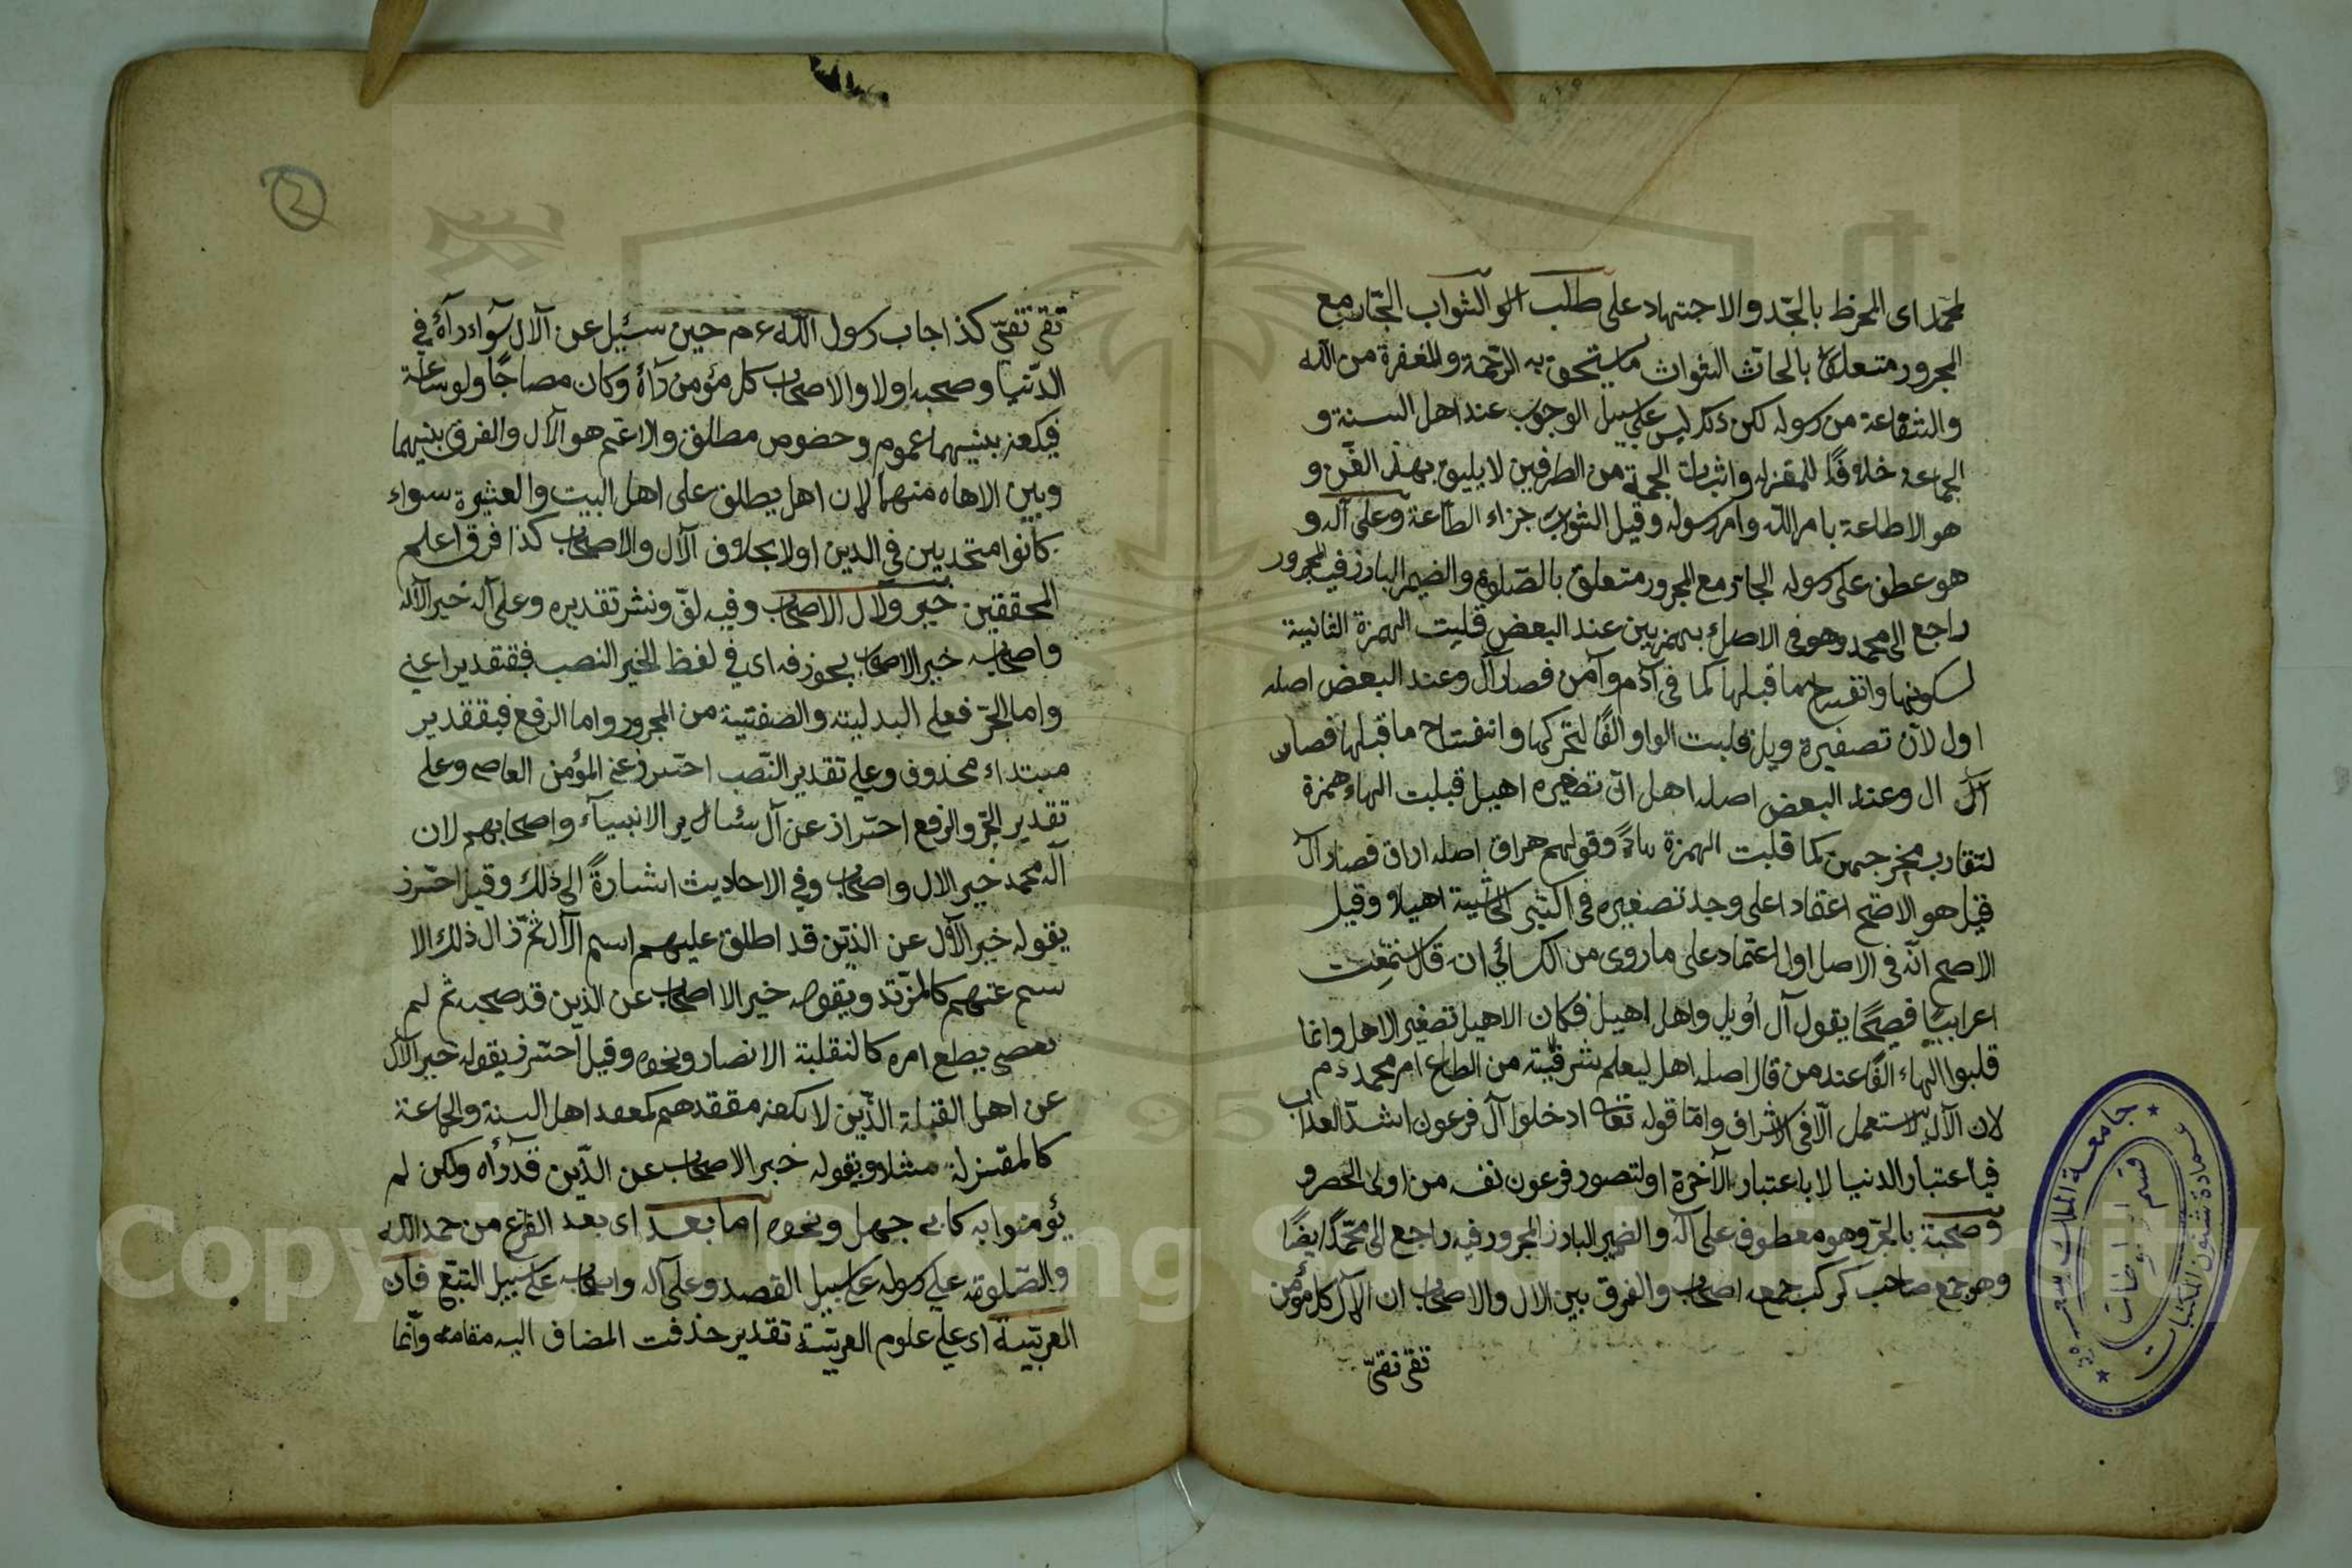 لمحمد اى المحرظ بالجد والاجتهاد على طلب الثواب الجار مع
المجرور متعلق بالحاث الثواب ما يستحق به الرحمة والمغفرة من الله
والشفاعة من رسوله لكن ذكر ليس على سبيل الوجوب عند اهل السنة و
الجماعة خلافا للمعتزلة واثبات الحجة من الطرفين لا يليق بهذ الفن و
هو الاطاعة بامر الله وامر رسوله وقيل الثواب جزاء الطاعة وعلى آله و
هو عطف على رسوله الجار مع المجرور متعلق بالصلوة والضمير البارز فيه المجرور
راجع الى محمد وهو فى الاصل بهمزيين عند البعض قلبت الهمزة الثانية
لسكونها وانفتاح ما قبلها كما فى آدم وآمن فصار آل وعند البعض اصله
اول لان تصغيره ويل قلبت الواو الفا لتحركها وانفتاح ما قبلها فصار
آل ال وعند البعض اصله اهل لان تصغيره اهيل قبلبت الهاء همزة
لتقارب مخرجهن كما قلبت الهمزة هاء وقولهم هراق اصله اراق فصار آل
قيل هو الاصح اعتمادا على وجد تصغيره فى اكثر الحاشية اهيلا وقيل
الاصح انه فى الاصل اول اعتماد على ما روى من الكسائي انه قال سمعت
اعرابيا فصيحا يقول آل اويل واهل اهيل فكان الاهيل تصغير الاهل وانما
قلبوا الهاء الفا عند من قال اصله اهل ليعلم شرفيته من اطاع امر محمد ءم
لان الآل لا يستعمل الا فى الاشراف واما قوله تعا ادخلوا آل فرعون اشد العذاب
فباعتبار الدنيا لا باعتبار الآخرة او لتصور فرعون نفسه من اولى الخصر و
وصحبة بالجر وهو معطوف على آله والضمير البارز المجرور فيه راجع الى محمد ايضا
وهو جمع صاحب كركب جمعه اصحاب والفرق بين الال والاصحاب ان الآل كل مؤمن
تقى نقى
تقى نقى كذا اجاب رسول الله ءم حين سئيل عن الآل سواء رآه في
الدنيا وصحبه اولا والاصحاب كل مؤمن رآه وكان مصاحبا ولو ساعة
فيكون بينهما عموم وخصوص مطلق والاعم هو الآل والفرق بينهما
وبين الاهل منهما لان اهل يطلق على اهل البيت والعشيرة سواء
كانوا متحدين في الدين اولا بخلاف الآل والاصحاب كذا فرق اعلم
المحققين خير ولال الاصحاب وفيه لف ونشر تقديره وعلى آله خير الآله
واصحابه خير الاصحاب يجوز فه اى في لفظ الخير النصب فبتقدير اعني
واما الجر فعلى البدلية والصفتية من المجرور واما الرفع فبتقدير
مبتداء محذوف وعلى تقدير النصب احترز عن المؤمن العاصى وعلى
تقدير الجر والرفع احتراز عن آل سائر الانبياء واصحابهم لان
آله محمد خير الال واصحاب وفي الاحاديث اشارة الى ذلك وقيل احترز
بقوله خير الآل عن الذين قد اطلق عليهم اسم الآل ثم زال ذلك الا
سم عنهم كالمرتد وبقوله خير الا اصحاب عن الذين قد صحبه ثم لم
يطع امره كالنقلبة الانصار ونحوه وقيل احترز بقوله خير الآل
عن اهل القبلة الذين لا يكون معتقدهم كمعتقد اهل السنة والجماعة
كالمعتزلة مثلا وبقوله خير الاصحاب عن الذين قد رأه ولكن لم
يؤمنوا به كابى جهل ونحوه اما بعد اى بعد الفرغ من حمد الله
والصلوة على رسوله على سبيل القصد وعلى آله واصحابه على سبيل التبع فان
العربية اى علم علوم العربية تقدير حذفت المضاف اليه مقامه وانما
جامعة الملك سعود
عمادة شئون المكتبات
قسم المخطوطات
Copyright © King Saud University
1957